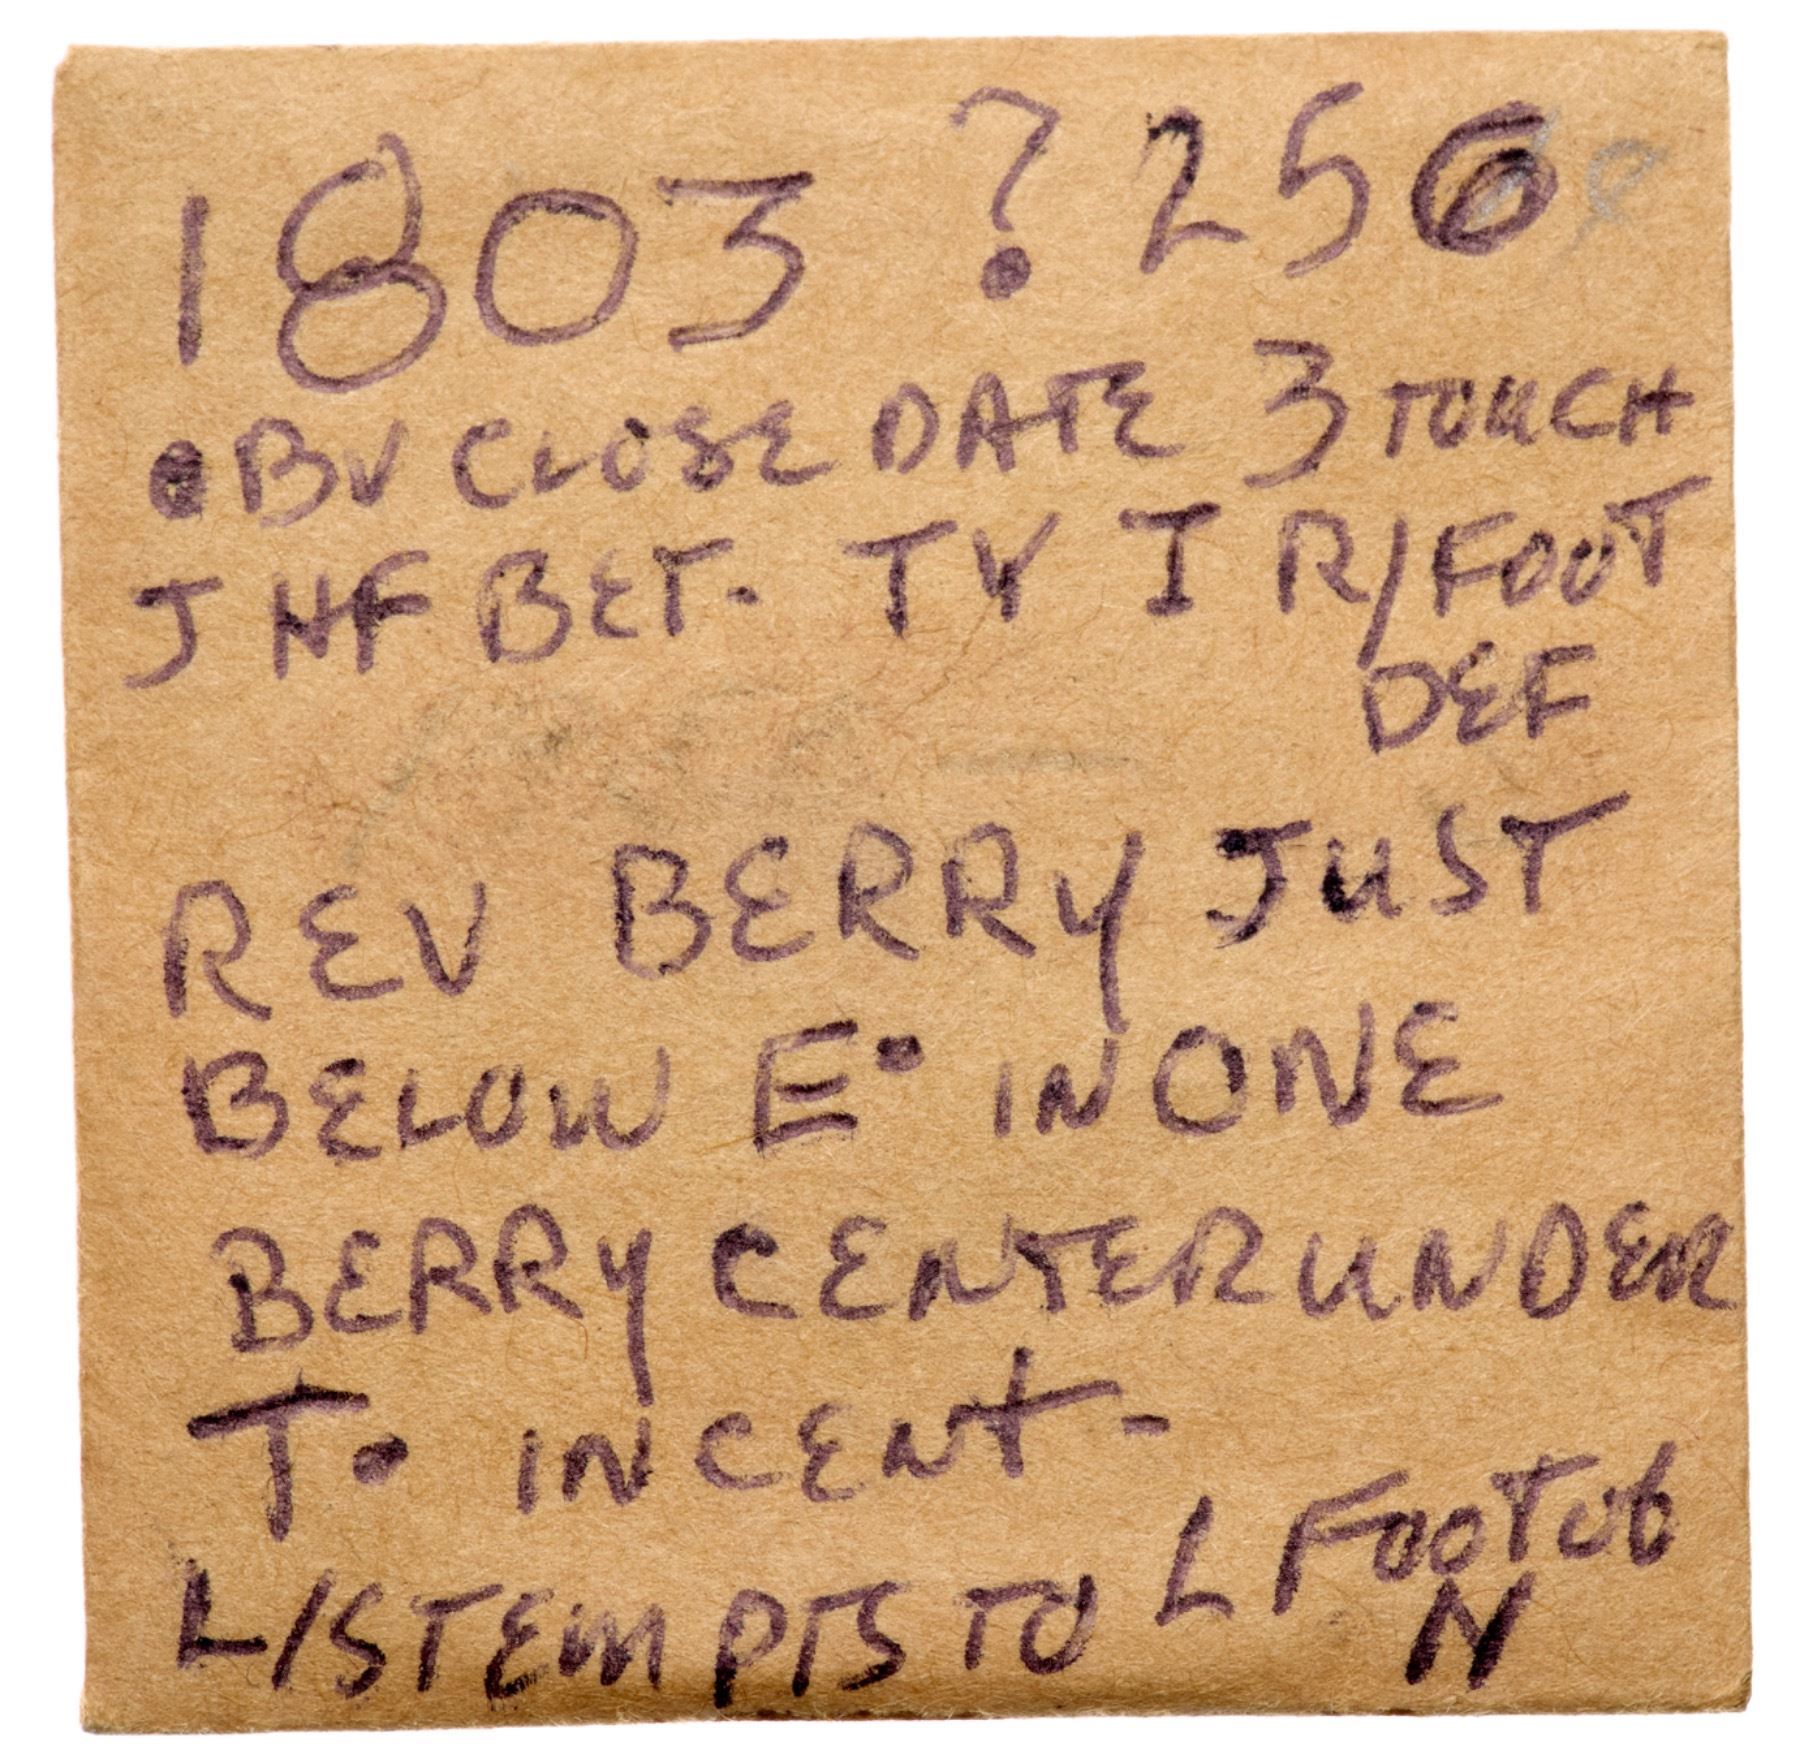 1803 ? 256
OBV CLOSE DATE 3 TOUCH
J HF BET. TY I R/FOOT
DEF
REV BERRY JUST
BELOW E. IN ONE
BERRY CENTER UNDER
T. IN CENT-
L/STEM PTS TO L FOOT OF
N